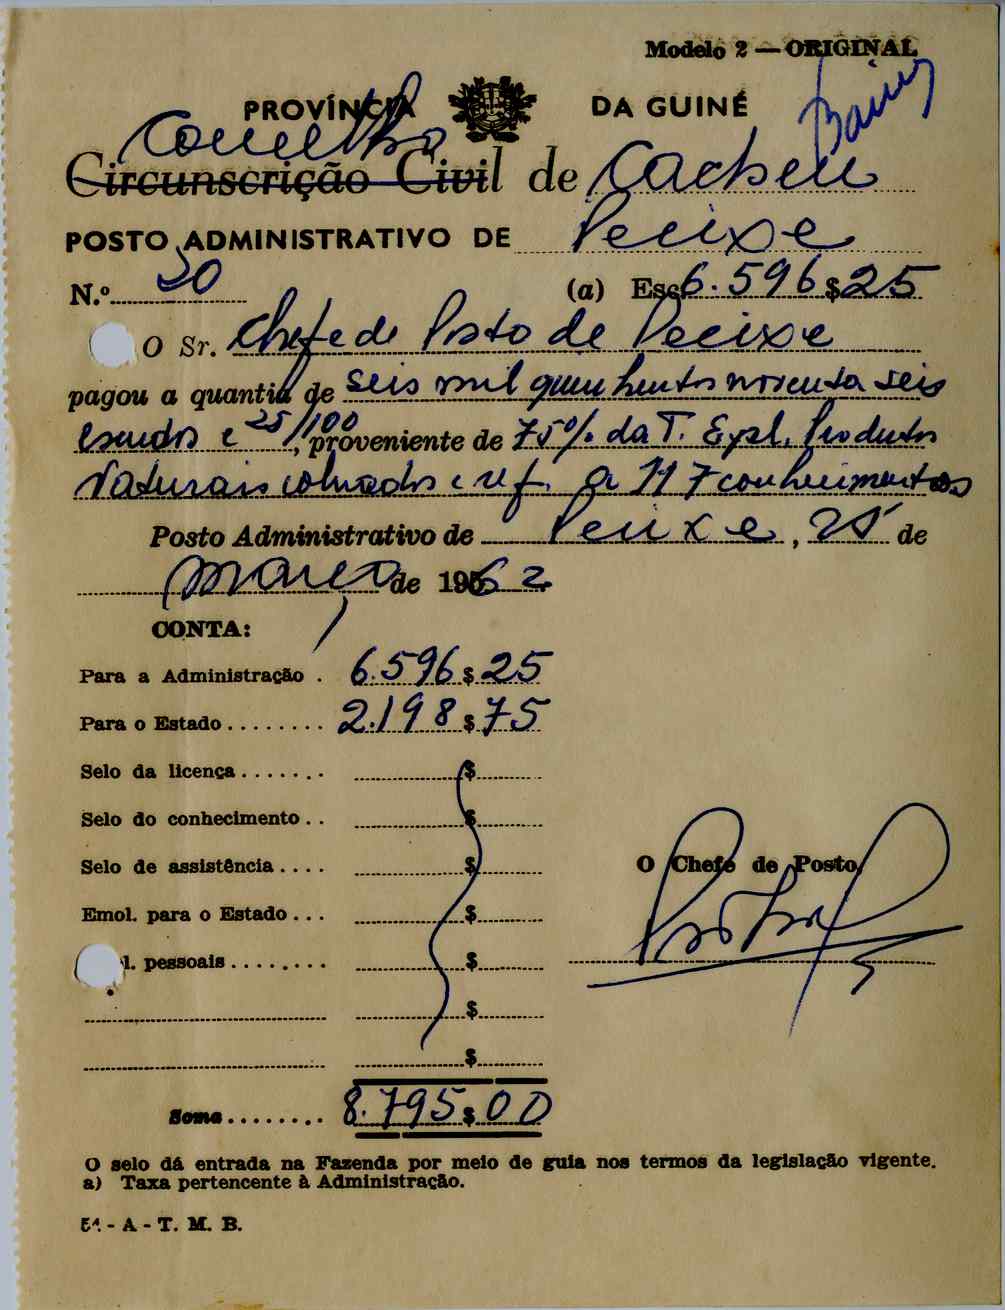 Modelo 2 — ORIGINAL
PROVÍNCIA DA GUINÉ
Concelho
Circunscrição Civil de Cacheu
POSTO ADMINISTRATIVO DE Pecixe
N.º 20 (a) Esc. 6.596$25
O Sr. Chefe de Posto de Pecixe
pagou a quantia de seis mil quinhentos noventa seis
escudos e 25/100, proveniente de 75% da T. Expl. Produtos
Naturais cobrados e ref. a 117 conhecimentos
Posto Administrativo de Pecixe, 25 de
março de 1962
CONTA:
Para a Administração . 6.596$25
Para o Estado ........ 2.198$75
Selo da licença ....... $
Selo do conhecimento .. $
Selo de assistência .... $
Emol. para o Estado ... $
l. pessoais ........ $
$
$
O Chefe de Posto,
Soma ........ 8.795$00
O selo dá entrada na Fazenda por meio de guia nos termos da legislação vigente.
a) Taxa pertencente à Administração.
5ª. - A - T. M. B.